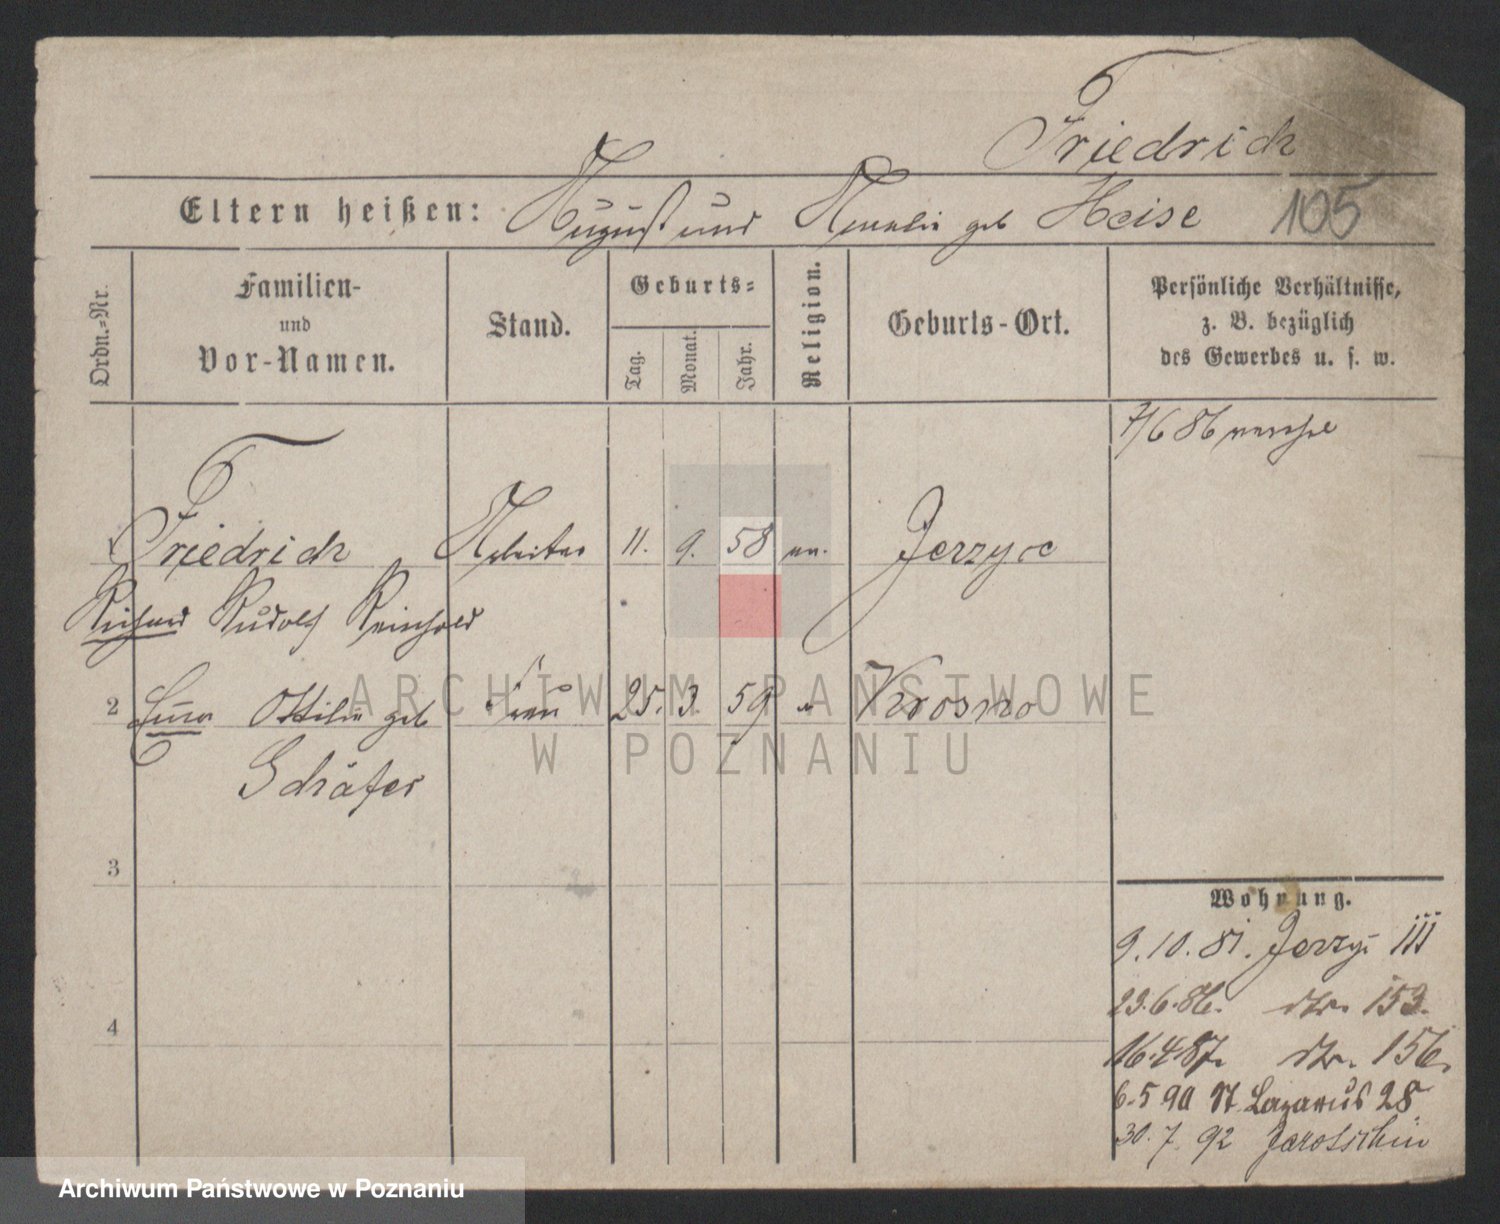 Friedrich
Eltern heißen: August und Amalie geb Heise 105
Ordn.-Nr.
Familien-
und
Vor-Namen.
Stand.
Geburts-
Tag.
Monat.
Jahr.
Religion.
Geburts-Ort.
Persönliche Verhältnisse,
z. B. bezüglich
des Gewerbes u. s. w.
7/6 86
1 Friedrich Arbeiter 11. 9. 58 ev. Jerzyce
Richard Rudolf Reinhold
2 Ottilie geb Frau 25. 3. 59 " Krosno
Schäfer
3
4
Wohnung.
9.10.81. Jerzyc 111
23.6.86. 153.
16.4.87. 156.
6.5 90 St. Lazarus 28
30.7.92 Jarotschin
ARCHIWUM PAŃSTWOWE
W POZNANIU
Archiwum Państwowe w Poznaniu